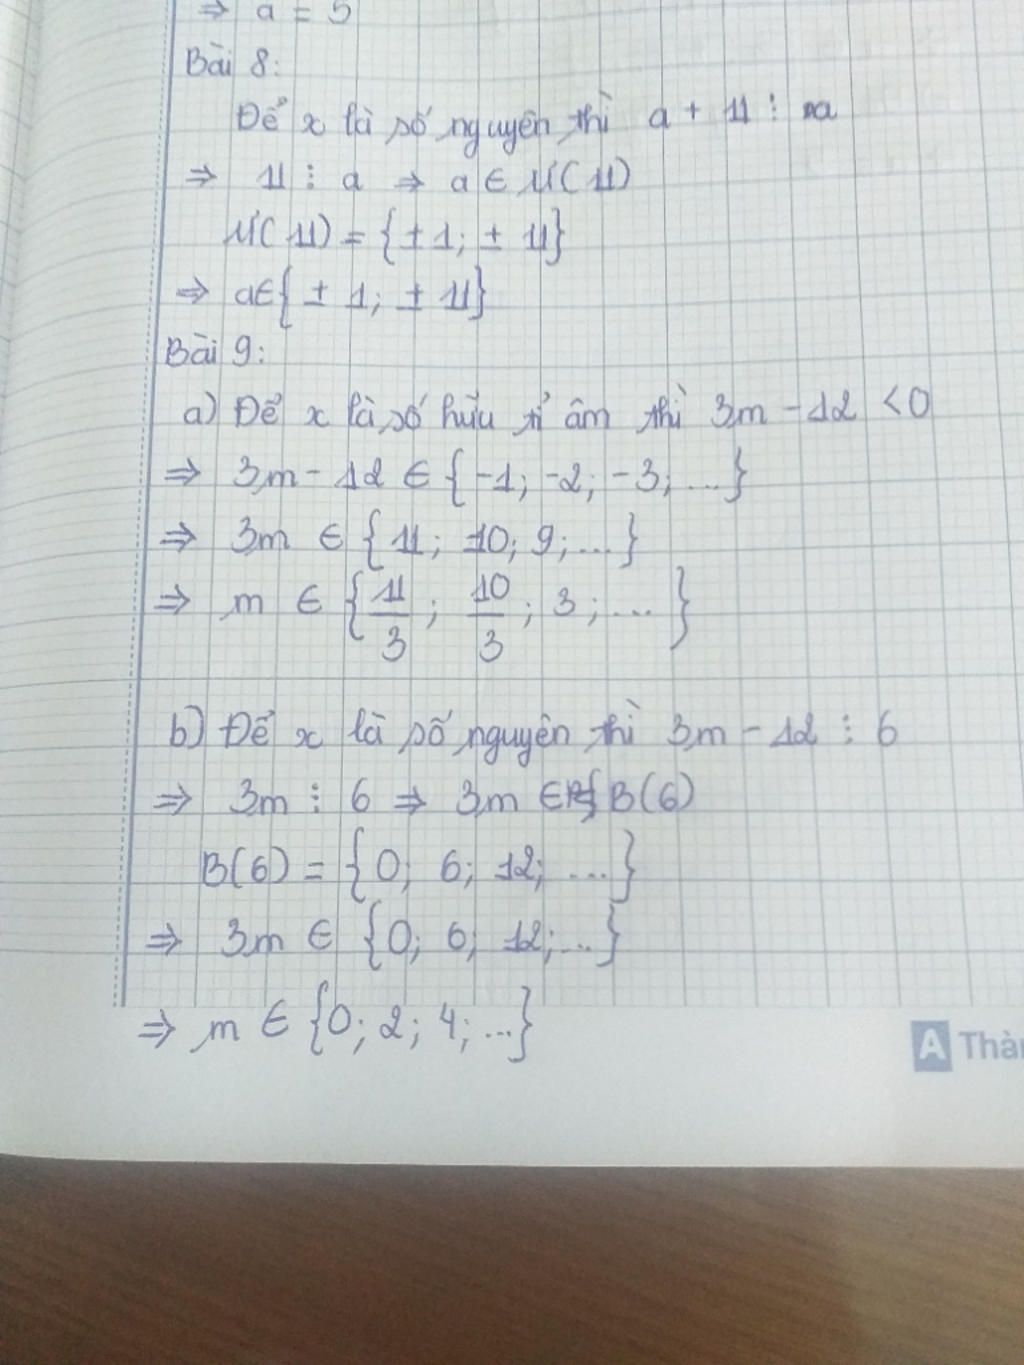 ⇒ a = 5
Bài 8:
Để x là số nguyên thì a + 11 ⋮ a
⇒ 11 ⋮ a ⇒ a ∈ Ư(11)
Ư(11) = {±1; ±11}
⇒ a∈{±1; ±11}
Bài 9:
a) Để x là số hữu tỉ âm thì 3m - 12 < 0
⇒ 3m - 12 ∈ {-1; -2; -3; ...}
⇒ 3m ∈ {11; 10; 9; ...}
⇒ m ∈ {11/3; 10/3; 3; ...}
b) Để x là số nguyên thì 3m - 12 ⋮ 6
⇒ 3m ⋮ 6 ⇒ 3m ∈ B(6)
B(6) = {0; 6; 12; ...}
⇒ 3m ∈ {0; 6; 12; ...}
⇒ m ∈ {0; 2; 4; ...}
A